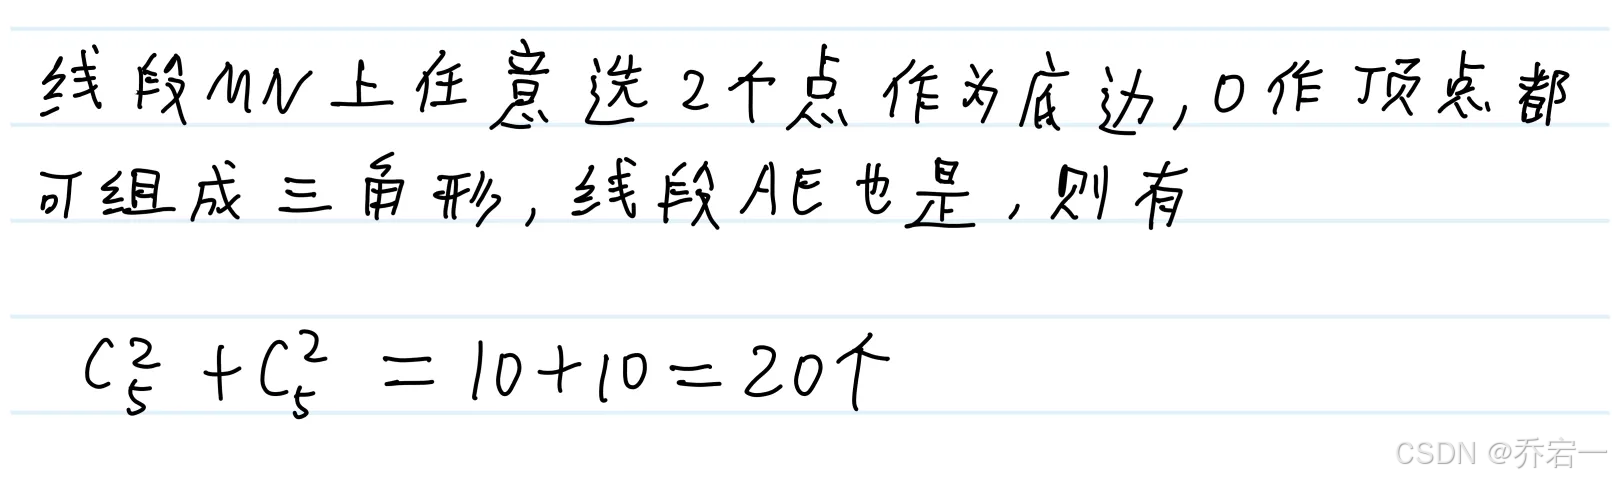 线段MN上任意选2个点作为底边,O作顶点都
可组成三角形,线段AE也是,则有
C₅² + C₅² = 10+10=20个
CSDN @乔宕一